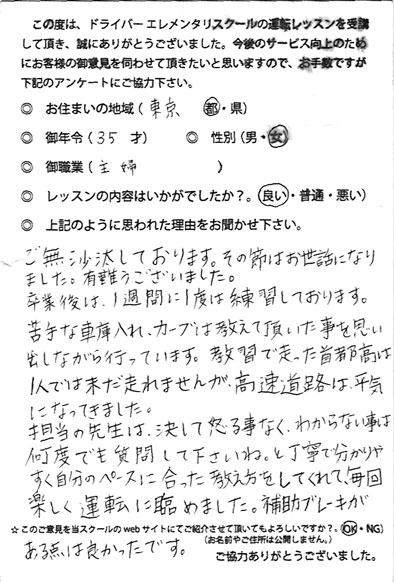 この度は、ドライバーエレメンタリスクールの運転レッスンを受講
して頂き、誠にありがとうございました。今後のサービス向上のため
にお客様の御意見を伺わせて頂きたいと思いますので、お手数ですが
下記のアンケートにご協力下さい。
◎ お住まいの地域（東京 都・県）
◎ 御年令（35 才） ◎ 性別（男・女）
◎ 御職業（主婦 ）
◎ レッスンの内容はいかがでしたか？。（良い・普通・悪い）
◎ 上記のように思われた理由をお聞かせ下さい。
ご無沙汰しております。その節はお世話になり
ました。有難うございました。
卒業後は、1週間に1度は練習しております。
苦手な車庫入れ、カーブは教えて頂いた事を思い
出しながら行っています。教習で走った首都高は
1人では未だ走れませんが、高速道路は、平気
になってきました。
担当の先生は、決して怒る事なく、わからない事は
何度でも質問して下さいね。と丁寧で分かりや
すく自分のペースに合った教え方をしてくれて、毎回
楽しく運転に臨めました。補助ブレーキが
☆このご意見を当スクールのwebサイトにてご紹介させて頂いてもよろしいですか？。（OK・NG）
（お名前やご住所は公開しません。）
ある点は良かったです。
ご協力ありがとうございました。